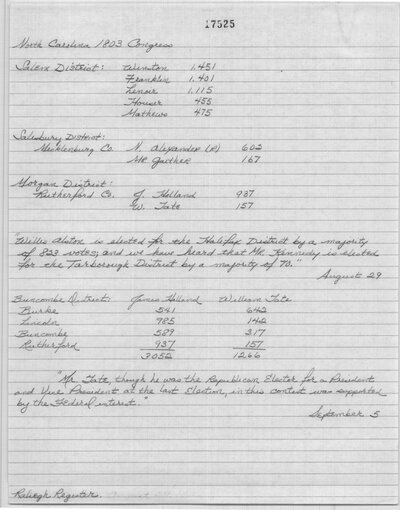 17525
North Carolina 1803 Congress
Salem District: Winston 1,451
Franklin 1,401
Lenoir 1,115
Houser 455
Mathews 475
Salisbury District:
Mecklenburg Co. N. Alexander (R) 602
Mr Gaither 167
Morgan District:
Rutherford Co. J. Holland 937
W. Tate 157
"Willis Alston is elected for the Halifax District by a majority
of 823 votes; and we have heard that Mr. Kennedy is elected
for the Tarborough District by a majority of 70."
August 29
Buncombe District: James Holland William Tate
Burke 541 642
Lincoln 985 142
Buncombe 589 317
Rutherford 937 157
3052 1266
"Mr. Tate, though he was the Republican Elector for a President
and Vice President at the last Election, in this contest was supported
by the Federal interest."
September 5
Raleigh Register.